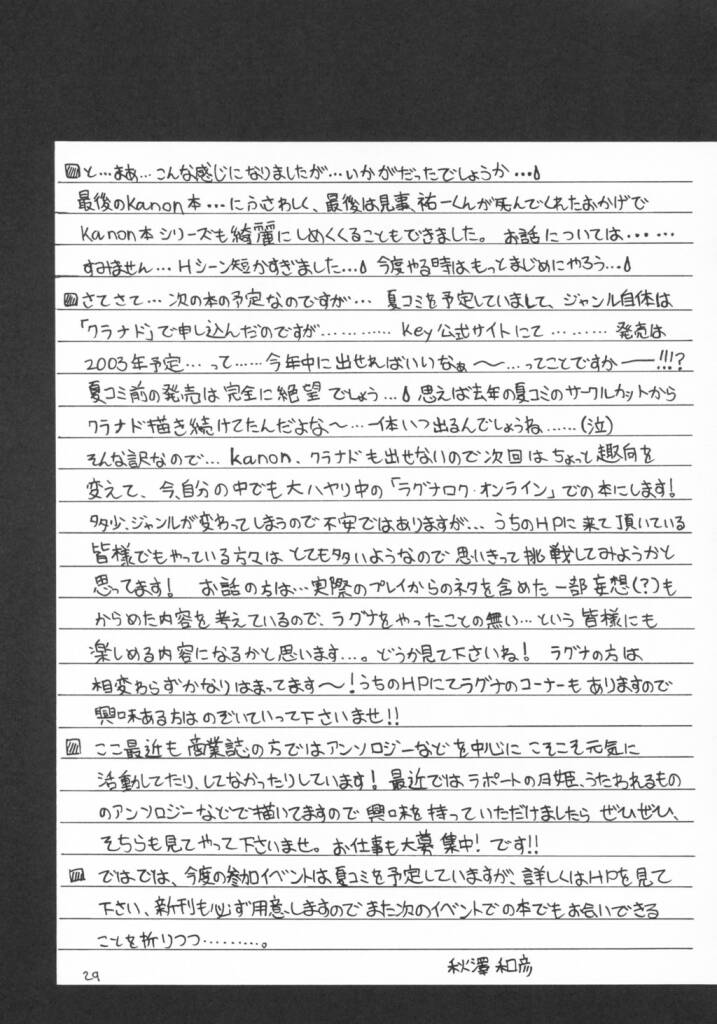 と…まぁ…こんな感じになりましたが…いかがだったでしょうか…
最後のKanon本…にふさわしく、最後は見事、祐一くんが死んでくれたおかげで
Kanon本シリーズも綺麗にしめくくることもできました。 お話については……
すみません…Hシーン短かすぎました… 今度やる時はもっとまじめにやろう…
さてさて…次の本の予定なのですが… 夏コミを予定していまして、ジャンル自体は
「クラナド」で申し込んだのですが………… Key公式サイトにて ……… 発売は
2003年予定…って……今年中に出せればいいなぁ〜…ってことですかー!!!?
夏コミ前の発売は完全に絶望でしょう… 思えば去年の夏コミのサークルカットから
クラナド描き続けてたんだよな〜…一体いつ出るんでしょうね……(泣)
そんな訳なので…Kanon、クラナドも出せないので次回はちょっと趣向を
変えて、今、自分の中でも大ハヤリ中の「ラグナロク・オンライン」での本にします!
多少、ジャンルが変わってしまうので不安ではありますが… うちのHPに来て頂いている
皆様でもやっている方々はとても多いようなので思いきって挑戦してみようかと
思ってます! お話の方は…実際のプレイからのネタを含めた一部妄想(?)も
からめた内容を考えているので、ラグナをやったことの無い…という皆様にも
楽しめる内容になるかと思います…。どうか見て下さいね! ラグナの方は
相変わらずかなりはまってます〜!うちのHPにてラグナのコーナーもありますので
興味ある方はのぞいていって下さいませ!!
ここ最近も商業誌の方ではアンソロジーなどを中心にこそこそ元気に
活動してたり、してなかったりしています! 最近ではラポートの月姫、うたわれるもの
のアンソロジーなどで描いてますので興味を持っていただけましたらぜひぜひ、
そちらも見てやって下さいませ。お仕事も大募集中!です!!
ではでは、今度の参加イベントは夏コミを予定していますが、詳しくはHPを見て
下さい、新刊も必ず用意しますのでまた次のイベントでの本でもお会いできる
ことを祈りつつ………。
秋澤 和彦
29